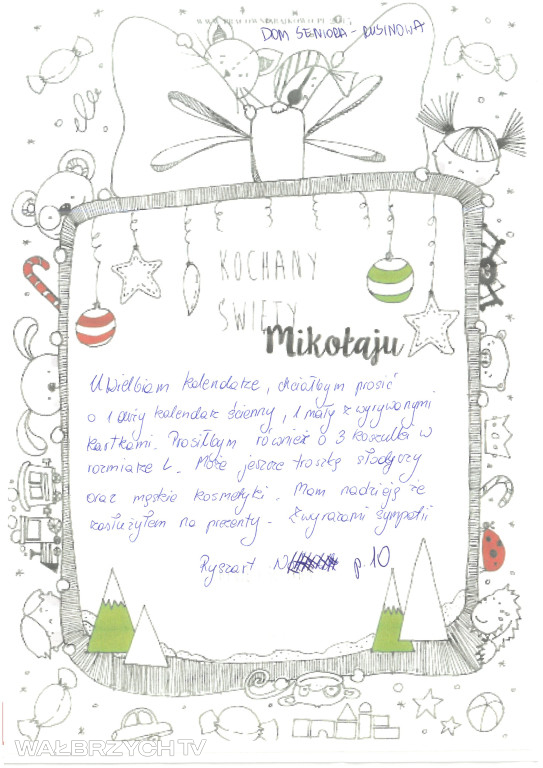 DOM SENIORA - RUSINOWA
KOCHANY
ŚWIĘTY
Mikołaju
Uwielbiam kalendarze, chciałbym prosić
o 1 duży kalendarz ścienny, 1 mały z wyrywanymi
kartkami. Prosiłbym również o 3 koszulki w
rozmiarze L. Może jeszcze troszkę słodyczy
oraz męskie kosmetyki. Mam nadzieję że
zasłużyłem na prezenty - Z wyrazami sympatii
Ryszart N p. 10
WAŁBRZYCH TV